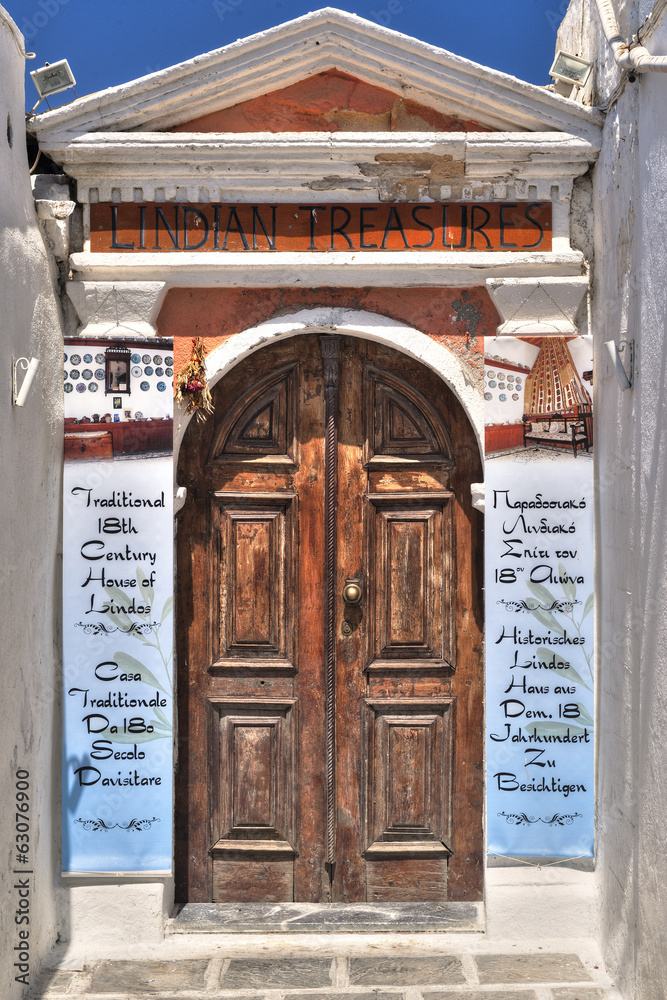 LINDIAN TREASURES
Traditional
18th
Century
House of
Lindos
Casa
Traditionale
Da 18o
Secolo
Davisitare
Παραδοσιακό
Λινδιακό
Σπίτι του
18ου Αιώνα
Historisches
Lindos
Haus aus
Dem. 18
Jahrhundert
Zu
Besichtigen
Adobe Stock | #63076900